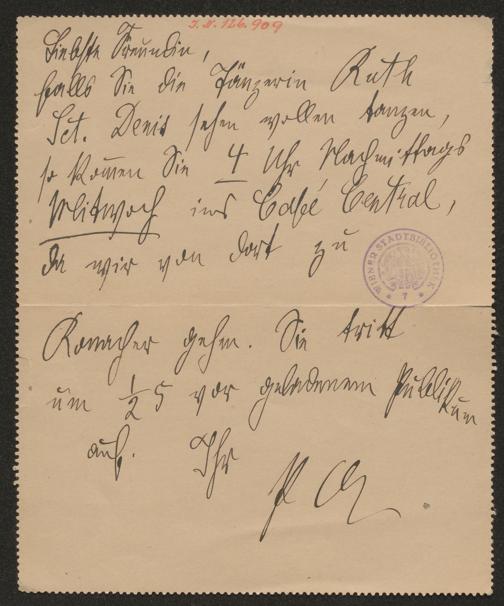 J. N. 126.909
Liebste Freundin,
falls Sie die Tänzerin Ruth
Sct. Denis sehen wollen tanzen,
so kommen Sie 4 Uhr Nachmittags
Mittwoch ins Café Central,
da wir von dort zu
WIENER STADTBIBLIOTHEK
Ronacher gehn. Sie tritt
um ½5 vor geladenem Publikum
auf. Ihr
P A